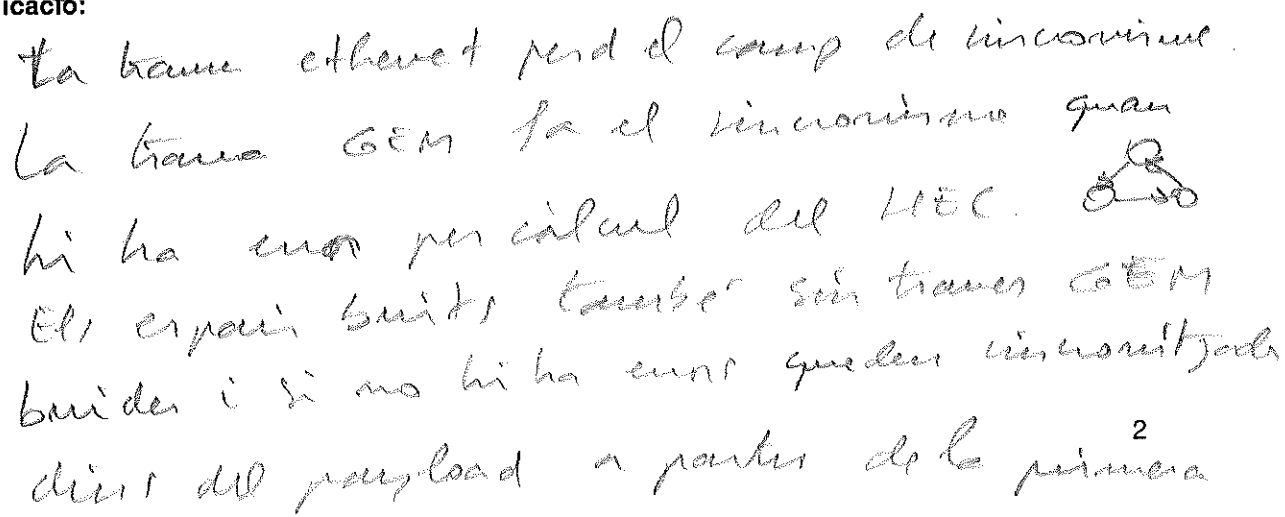 icació:
La trama ethernet perd el camp de sincronisme.
La trama GEM fa el sincronisme quan
hi ha error per càlcul del HEC.
Els espais buits també són trames GEM
buides i si no hi ha errors queden sincronitzades
dins del payload a partir de la primera
2